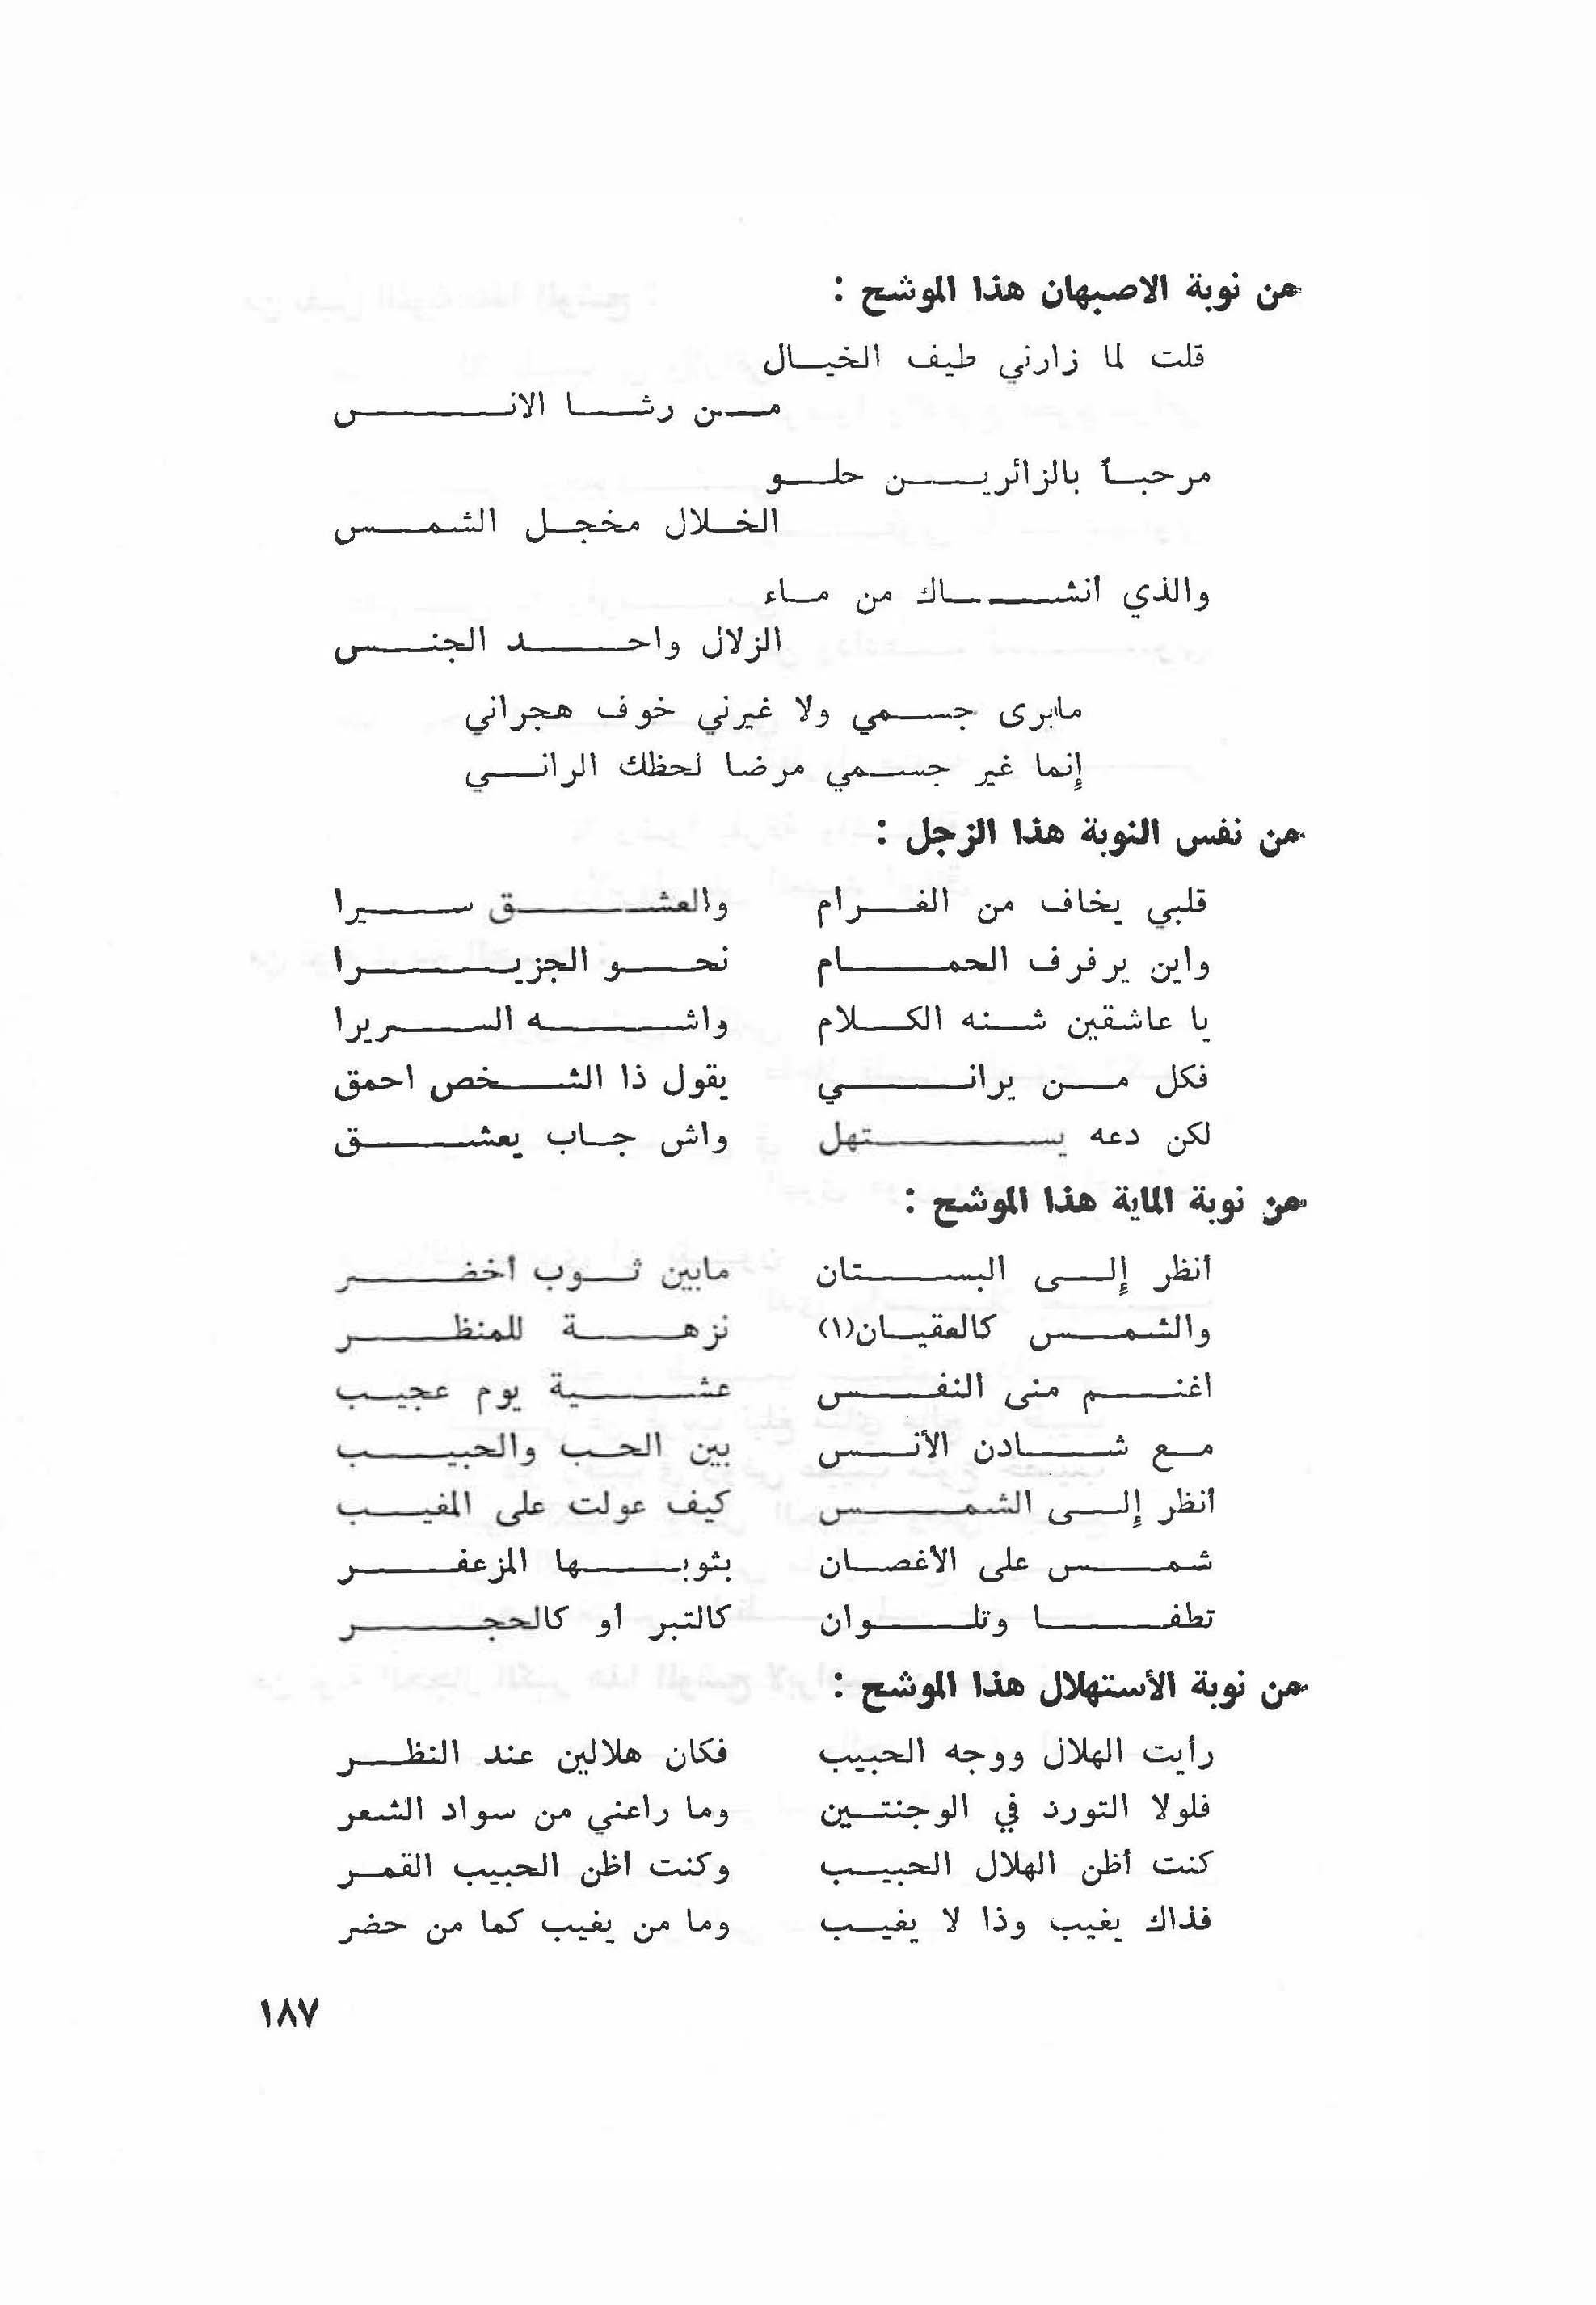 من نوبة الاصبهان هذا الموشح :
قلت لما زارني طيف الخيال
من رشا الانس
مرحباً بالزائرين حلو
الخلال مخجل الشمس
والذي أنشاك من ماء
الزلال واحد الجنس
مابرى جسمي ولا غيرني خوف هجراني
إنما غير جسمي مرضا لحظك الراني
من نفس النوبة هذا الزجل :
قلبي يخاف من الغرام والعشق سيرا
واين يرفرف الحمام نحو الجزيرا
يا عاشقين شنه الكلام واشه السريرا
فكل من يراني يقول ذا الشخص احمق
لكن دعه يستهل واش جاب يعشق
من نوبة الماية هذا الموشح :
أنظر إلى البستان مابين ثوب أخضر
والشمس كالعقيان(١) نزهة للمنظر
اغنم منى النفس عشية يوم عجيب
مع شادن الأنس بين الحب والحبيب
أنظر إلى الشمس كيف عولت على المغيب
شمس على الأغصان بثوبها المزعفر
تطفا وتلوان كالتبر أو كالحجر
من نوبة الأستهلال هذا الموشح :
رأيت الهلال ووجه الحبيب فكان هلالين عند النظر
فلولا التورد في الوجنتين وما راعني من سواد الشعر
كنت أظن الهلال الحبيب وكنت أظن الحبيب القمر
فذاك يغيب وذا لا يغيب وما من يغيب كما من حضر
١٨٧